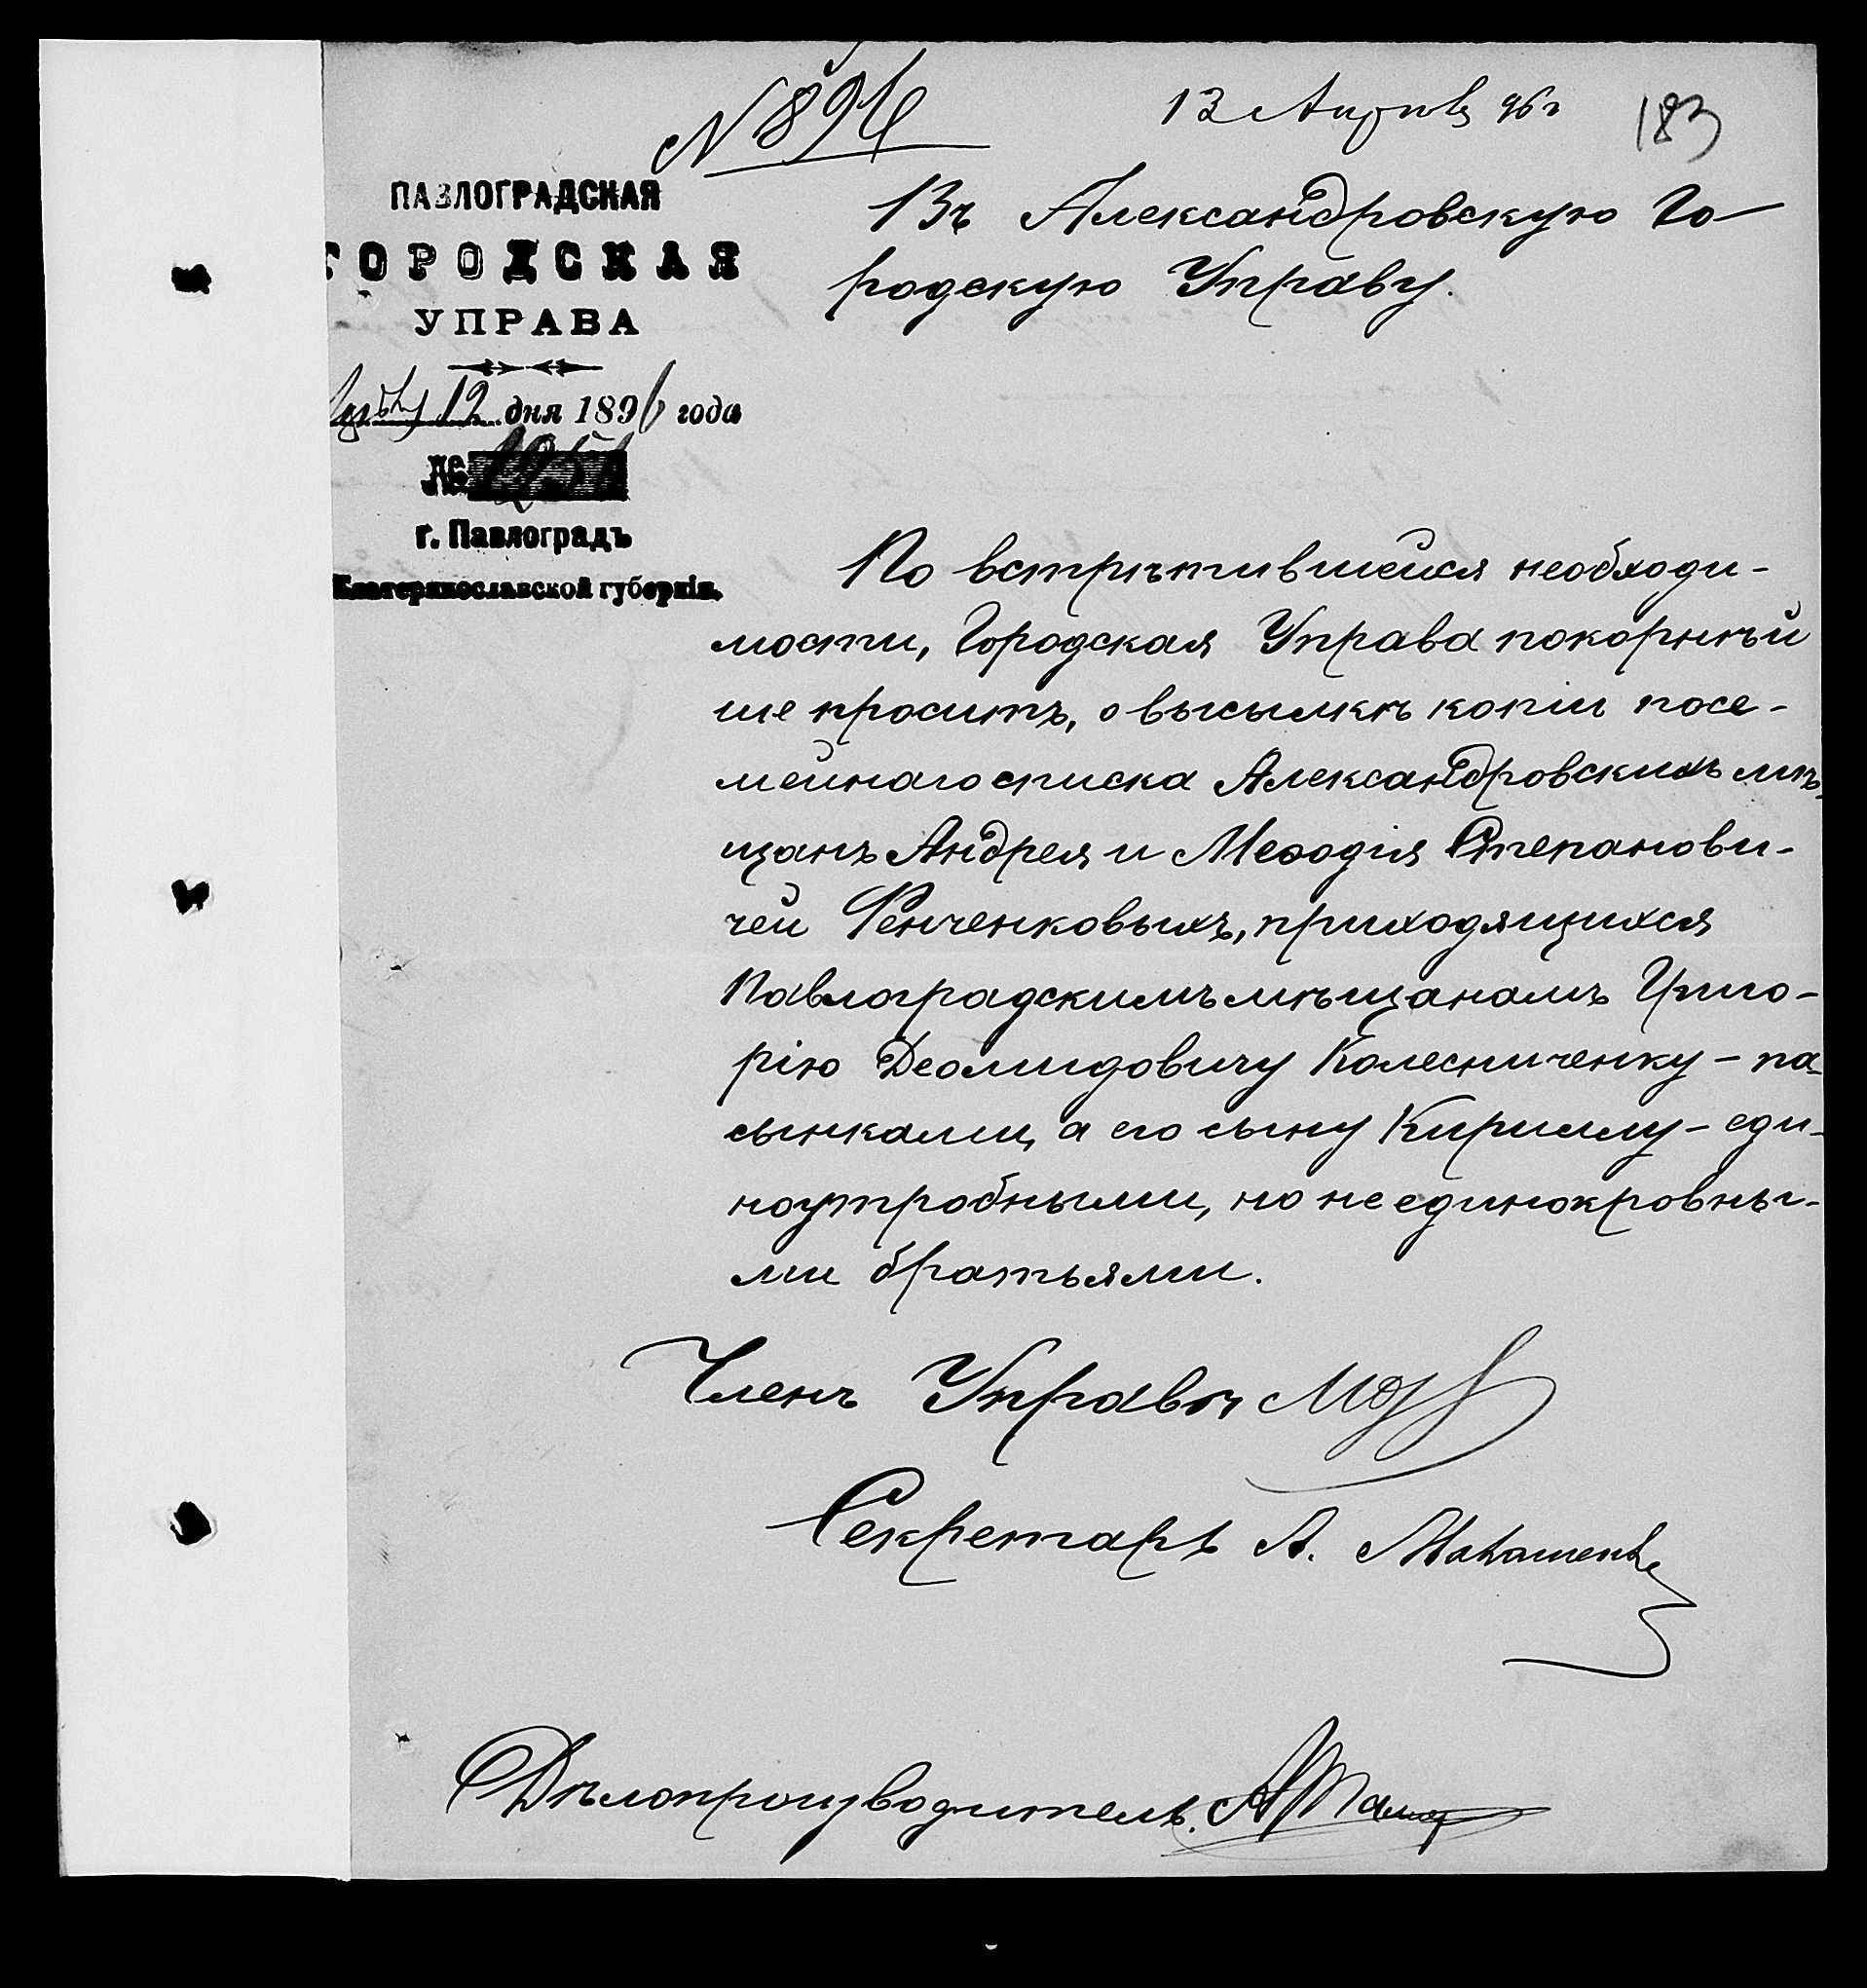 № 896
13 Апрѣля 96 г
183
ПАВЛОГРАДСКАЯ
ГОРОДСКАЯ
УПРАВА
12 дня 1896 года
№
г. Павлоградъ
Екатеринославской губерніи.
Въ Александровскую Го-
родскую Управу.
По встрѣтившейся необходи-
мости, Городская Управа покорнѣй
ше проситъ, о высылкѣ копіи посе-
мейнаго списка Александровскихъ мѣ-
щанъ Андрея и Меѳодія Степанови-
чей Фенченковыхъ, приходящихся
Павлоградскимъ мѣщанамъ Григо-
рію Деомидовичу Колесниченку - па-
сынками, а его сыну Кириллу - еди-
ноутробными, но не единокровны-
ми братьями.
Членъ Управы
Секретарь А.
Дѣлопроизводитель.